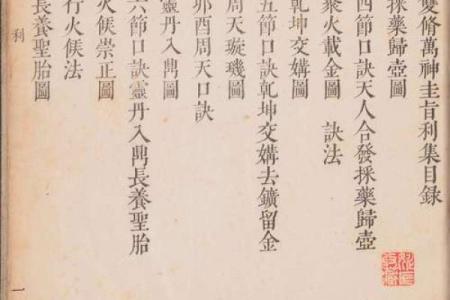 雙脩萬神圭旨利集目録
採藥歸壺圖
四節口訣天人合發採藥歸壺
聚火載金圖　訣法
乾坤交媾圖
五節口訣乾坤交媾去鑛留金
周天璇璣圖
卯酉周天口訣
靈丹入鼎圖
六節口訣靈丹入鼎長養聖胎
火候崇正圖
行火候法
長養聖胎圖
利
一